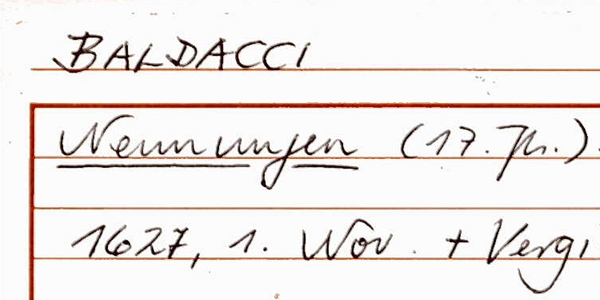 BALDACCI
Nennungen (17. Jh.).
1627, 1. Nov. + Vergi